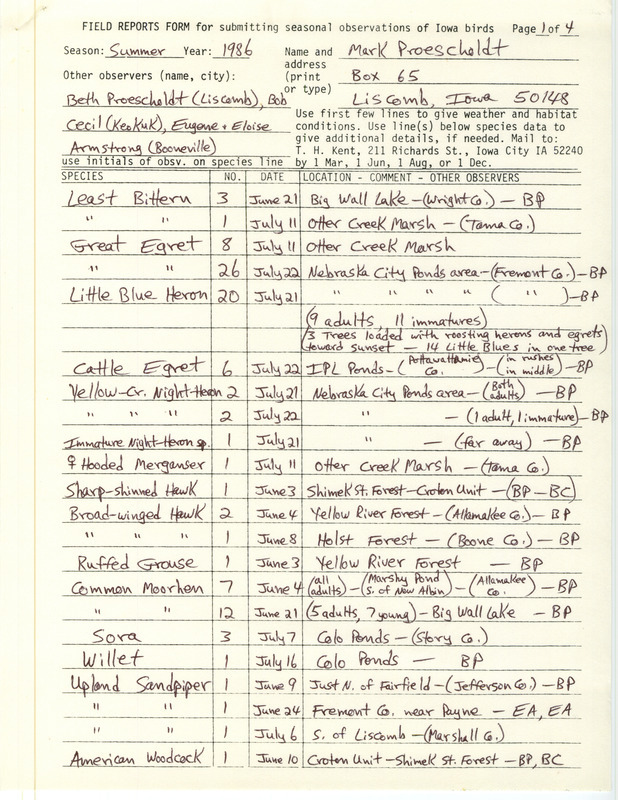 FIELD REPORTS FORM for submitting seasonal observations of Iowa birds Page 1 of 4
Season: Summer Year: 1986 Name and address (print or type) Mark Proescholdt
Box 65
Liscomb, Iowa 50148
Other observers (name, city):
Beth Proescholdt (Liscomb), Bob
Cecil (Keokuk), Eugene + Eloise
Armstrong (Booneville)
use initials of obsv. on species line
Use first few lines to give weather and habitat
conditions. Use line(s) below species data to
give additional details, if needed. Mail to:
T. H. Kent, 211 Richards St., Iowa City IA 52240
by 1 Mar, 1 Jun, 1 Aug, or 1 Dec.
SPECIES NO. DATE LOCATION - COMMENT - OTHER OBSERVERS
Least Bittern 3 June 21 Big Wall Lake - (Wright Co.) - BP
" " 1 July 11 Otter Creek Marsh - (Tama Co.)
Great Egret 8 July 11 Otter Creek Marsh
" " 26 July 22 Nebraska City Ponds area - (Fremont Co.) - BP
Little Blue Heron 20 July 21 " " " " ( " ) - BP
(9 adults, 11 immatures)
(3 Trees loaded with roosting herons and egrets
toward sunset - 14 Little Blues in one tree)
Cattle Egret 6 July 22 IPL Ponds - (Pottawattamie Co.) - (in rushes in middle) - BP
Yellow-Cr. Night-Heron 2 July 21 Nebraska City Ponds area - (Both adults) - BP
" " " 2 July 22 " - (1 adult, 1 immature) - BP
Immature Night-Heron sp. 1 July 21 " - (far away) - BP
♀ Hooded Merganser 1 July 11 Otter Creek Marsh - (Tama Co.)
Sharp-shinned Hawk 1 June 3 Shimek St. Forest - Croton Unit - (BP - BC)
Broad-winged Hawk 2 June 4 Yellow River Forest - (Allamakee Co.) - BP
" " " 1 June 8 Holst Forest - (Boone Co.) - BP
Ruffed Grouse 1 June 3 Yellow River Forest - BP
Common Moorhen 7 June 4 (all adults) - (Marshy Pond S. of New Albin) - (Allamakee Co.) - BP
" " 12 June 21 (5 adults, 7 young) - Big Wall Lake - BP
Sora 3 July 7 Colo Ponds - (Story Co.)
Willet 1 July 16 Colo Ponds - BP
Upland Sandpiper 1 June 9 Just N. of Fairfield - (Jefferson Co.) - BP
" " 1 June 24 Fremont Co. near Payne - EA, EA
" " 1 July 6 S. of Liscomb - (Marshall Co.)
American Woodcock 1 June 10 Croton Unit - Shimek St. Forest - BP, BC